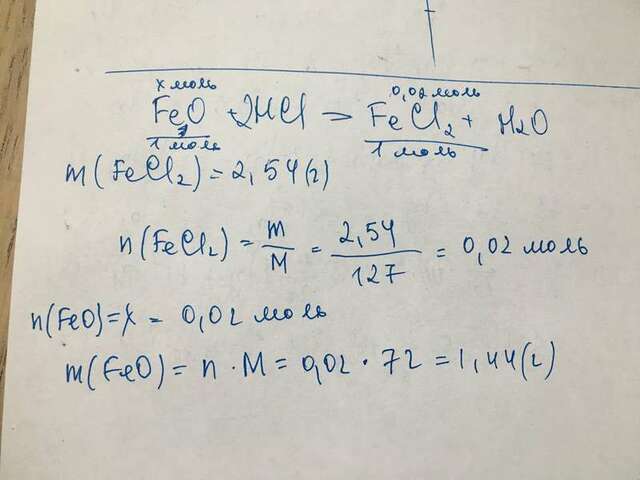 x моль 0,02 моль
FeO + 2HCl = FeCl2 + H2O
1 моль 1 моль
m(FeCl2) = 2,54(г)
n(FeCl2) = m/M = 2,54/127 = 0,02 моль
n(FeO) = x = 0,02 моль
m(FeO) = n · M = 0,02 · 72 = 1,44(г)